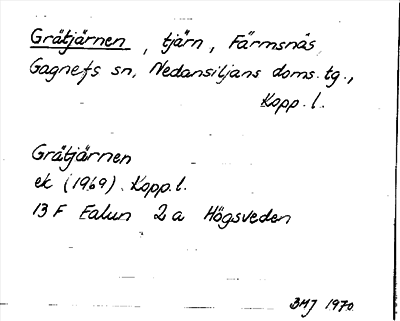 Gråtjärnen, tjärn, Färmsnäs
Gagnefs sn, Nedansiljans doms. tg.,
Kopp. l.
Gråtjärnen
ek (1969) Kopp. l.
13 F Falun 2 a Högsveden
BMJ 1970